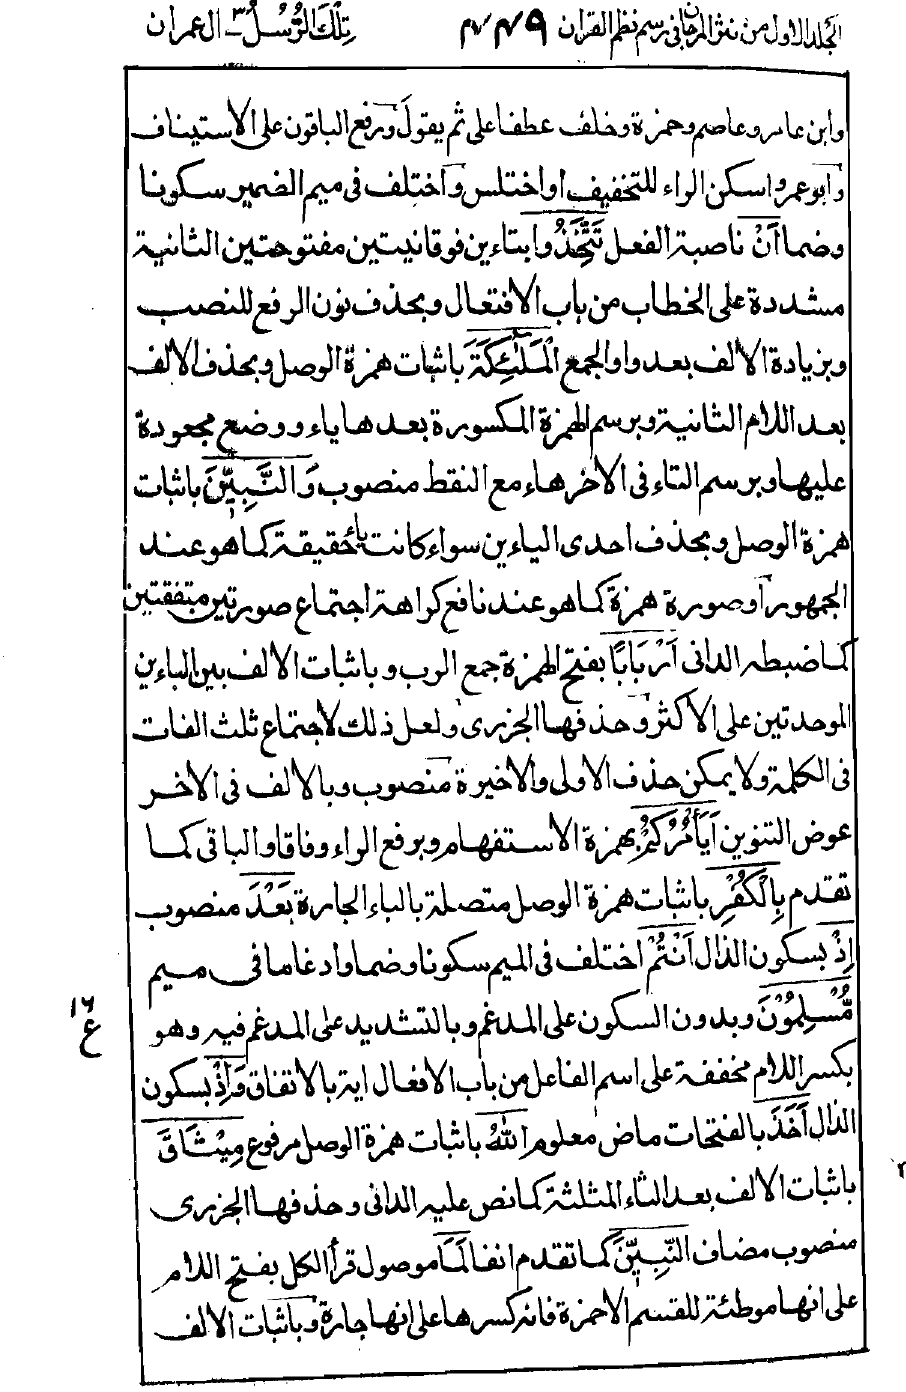 المجلد الاول من نثر المرجان في رسم نظم القران ٤٤٩ تلك الرسل ٣ ال عمران
وابن عامر وعاصم وحمزة وخلف عطفا على ثم يقولَ ورفع الباقون على الاستيناف
وابو عمرو اسكن الراء للتخفيف او اختلس واختلف في ميم الضمير سكونا
وضما اَنْ ناصبة الفعل تَتَّخِذُوا بتاءين فوقانيتين مفتوحتين الثانية
مشددة على الخطاب من باب الافتعال وبحذف نون الرفع للنصب
وبزيادة الالف بعد واو الجمع الْمَلٰٓئِكَةَ باثبات همزة الوصل وبحذف الالف
بعد اللام الثانية وبرسم الهمزة المكسورة بعدها ياء ووضع مجعودة
عليها وبرسم التاء في الاخر هاء مع النقط منصوب وَالنَّبِيّٖنَ باثبات
همزة الوصل وبحذف احدى الياءين سواء كانت ياء حقيقة كما هو عند
الجمهور او صورة همزة كما هو عند نافع كراهة اجتماع صورتين متفقتين
كما ضبطه الداني اَرْبَابًا بفتح الهمزة جمع الرب وباثبات الالف بين الباءين
الموحدتين على الاكثر وحذفها الجزري ولعل ذلك لاجتماع ثلث الفات
في الكلمة ولا يمكن حذف الاولى والاخيرة منصوب وبالالف في الاخر
عوض التنوين اَيَاْمُرُكُمْ بهمزة الاستفهام وبرفع الراء وفاقا والباقي كما
تقدم بِالْكُفْرِ باثبات همزة الوصل متصلة بالباء الجارة بَعْدَ منصوب
اِذْ بسكون الذال اَنْتُمْ اختلف في الميم سكونا وضما وادغاما في ميم
مُّسْلِمُوْنَ وبدون السكون على المدغم وبالتشديد على المدغم فيه وهو
١٦
ع
بكسر اللام مخففة على اسم الفاعل من باب الافعال اية بالاتفاق وَاِذْ بسكون
الذال اَخَذَ بالفتحات ماض معلوم اللهُ باثبات همزة الوصل مرفوع مِيْثَاقَ
٢
باثبات الالف بعد الثاء المثلثة كما نص عليه الداني وحذفها الجزري
منصوب مضاف النَّبِيّٖنَ كما تقدم انفا لَمَا موصول قرأ الكل بفتح اللام
على انها موطئة للقسم الا حمزة فانه كسرها على انها جارة وباثبات الالف